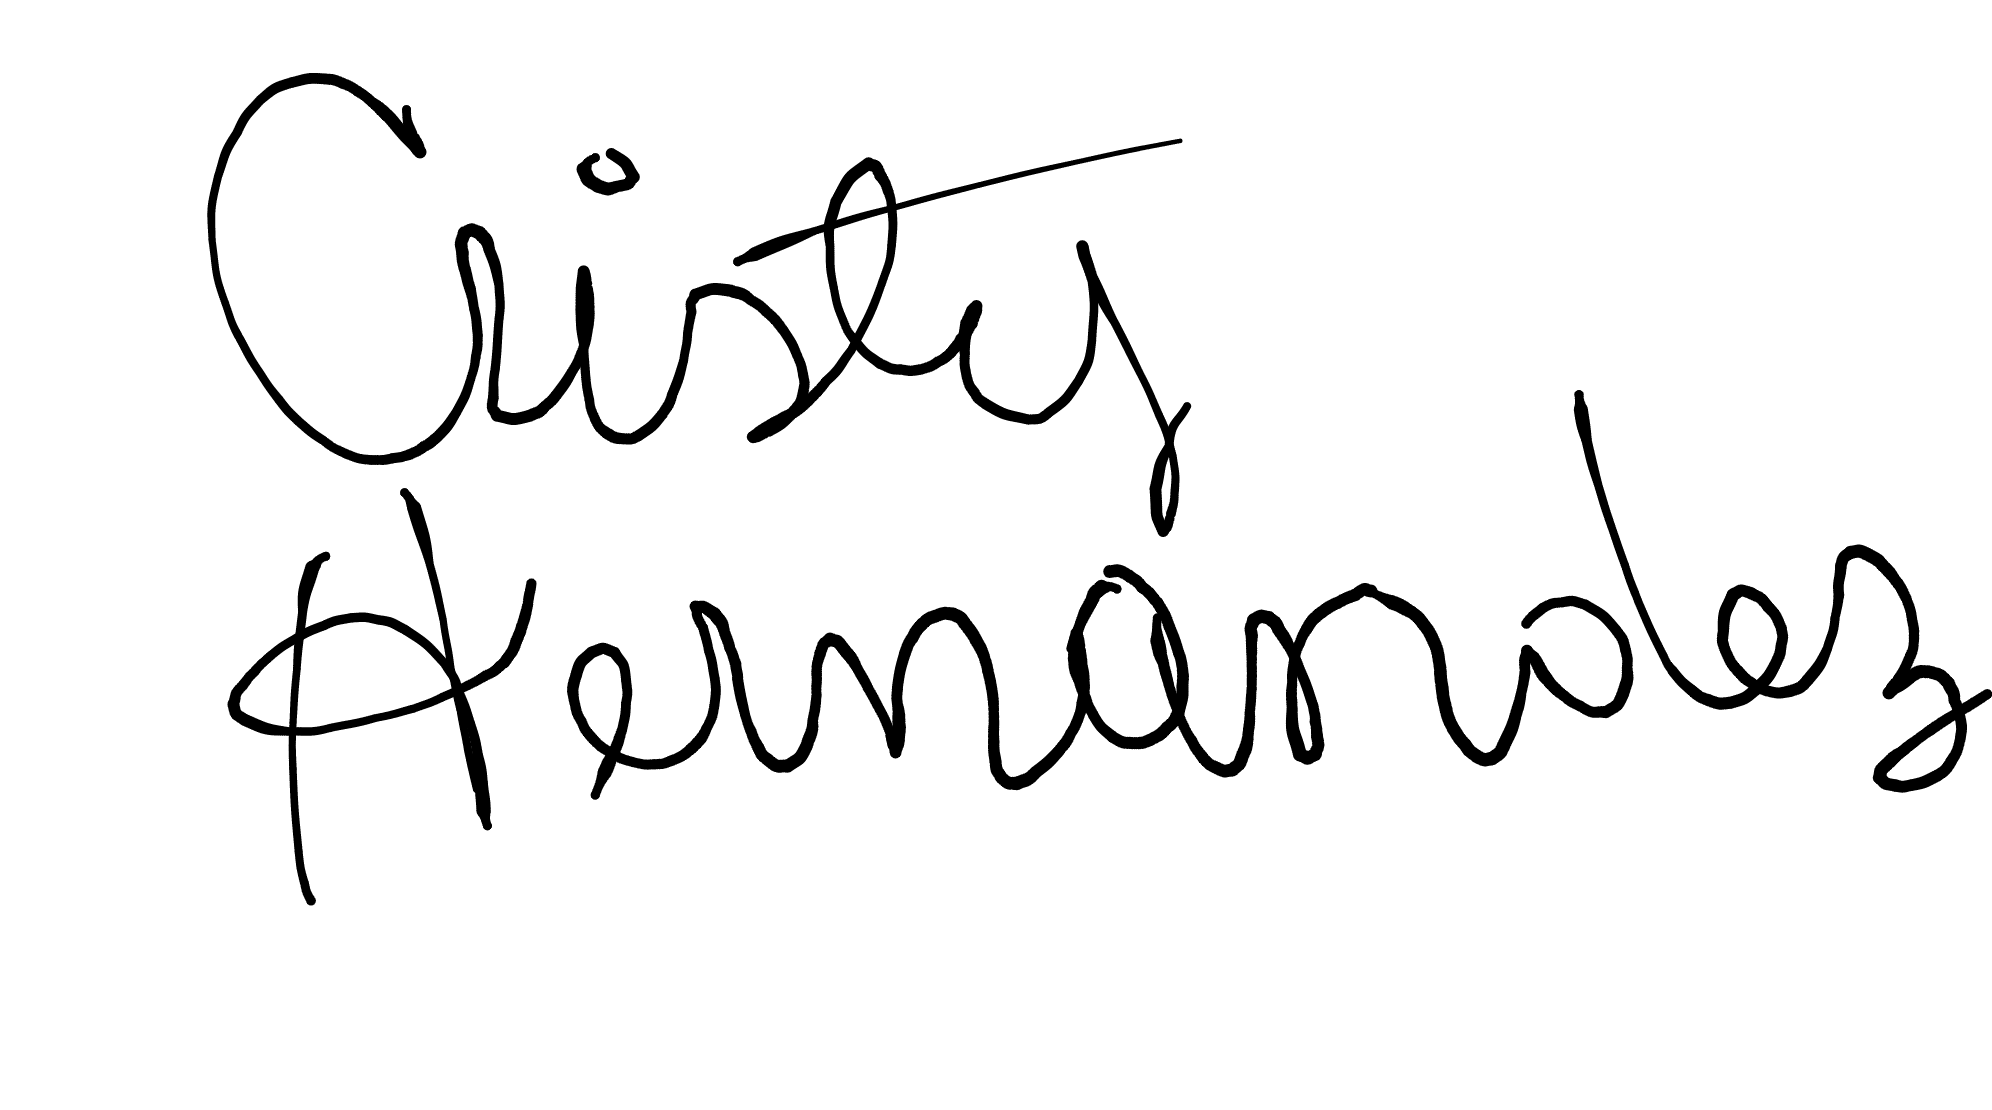 Cristy
Hernandez